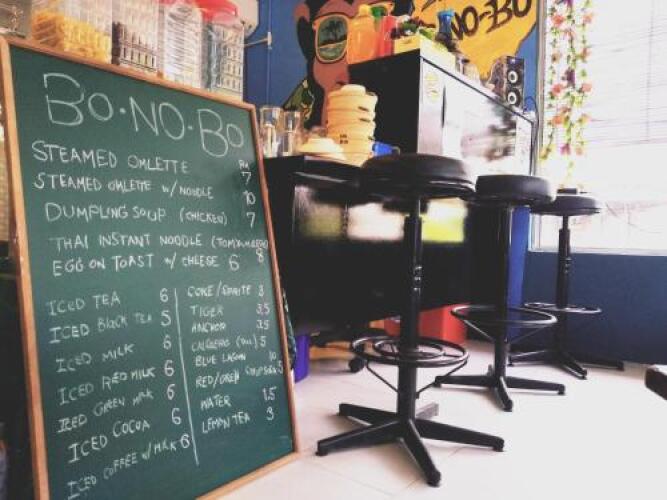 BO·NO·BO
RM
STEAMED OMLETTE 7
STEAMED OMLETTE W/ NOODLE 10
DUMPLING SOUP (CHICKEN) 7
THAI INSTANT NOODLE 8
EGG ON TOAST W/ CHEESE 6
ICED TEA 6
ICED BLACK TEA 5
ICED MILK 6
ICED RED MILK 6
ICED GREEN MILK 6
ICED COCOA 6
ICED COFFEE W/ MILK 6
COKE/SPRITE 3
TIGER 3.5
ANCHOR 3.5
BLUE LAGOON 10
RED/GREEN
WATER 1.5
LEMON TEA 3
NO-BO